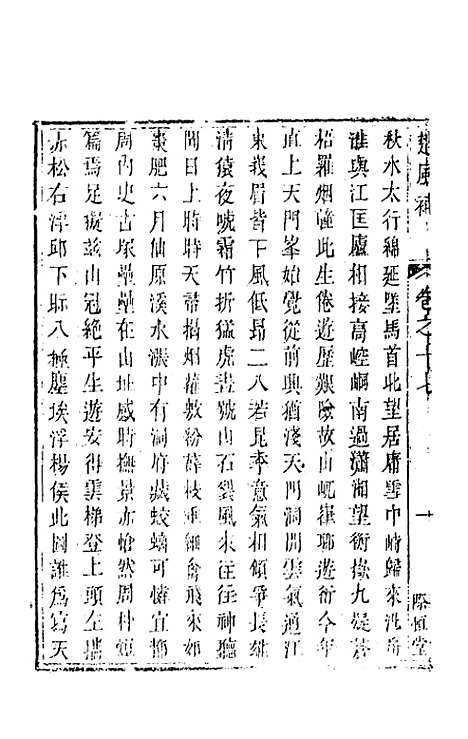 楚風補 卷之十七 一 際恒堂
秋水太行綿延墜馬首北望居庸雪中峙歸來汎舟
誰與江匡廬相接高崆峒南過瀟湘望衡嶽九嶷蒼
梧羅烟鐘此生倦遊歷艱險故山岷嶫聊遊衍今年
直上天門峯始覺從前興猶淺天門洞開雲氣通江
東我眉皆下風低昂二八若昆季意氣相傾爭長雄
清猿夜啼霜竹折猛虎晝號山石裂風來往往神聽
聞日上時時天帶揭烟蘿數粉薛枝重細禽飛來如
棗肥六月仙原溪水濃中有洞府藏蛟螭可憐宜都
周內史古塚纍纍在山址感時撫景亦愴然周朴短
篇焉足擬茲山冠絕平生遊安得雲梯登上頭左攜
赤松右浮邱下眎八極塵埃浮楊侯此圖誰爲寫天